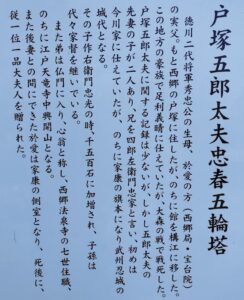 戸塚五郎太夫忠春五輪塔
徳川二代将軍秀忠公の生母、於愛の方(西郷局・宝台院)
の実父。もと西郷の戸塚に住したが、のちに館を構江に移した。
この地方の豪族で足利義晴に仕えていたが、大森の戦で戦死した。
戸塚五郎太夫に関する記録は少ないが、しかし五郎太夫の
先妻の子が二人あり、兄を四郎左衛門忠家と言い、初めは
今川家に仕えていたが、のちに家康の旗本になり武州忍城の
城代となる。
その子作右衛門忠光の時、千五百石に加増され、子孫は
代々家督を継いでいる。
また弟は仏門に入り、心翁と称し、西郷法泉寺の七世住職、
のちに江戸天竜寺中興開山となる。
また後妻との間にできた於愛は家康の側室となり、死後に、
従一位一品大夫人を贈られた。